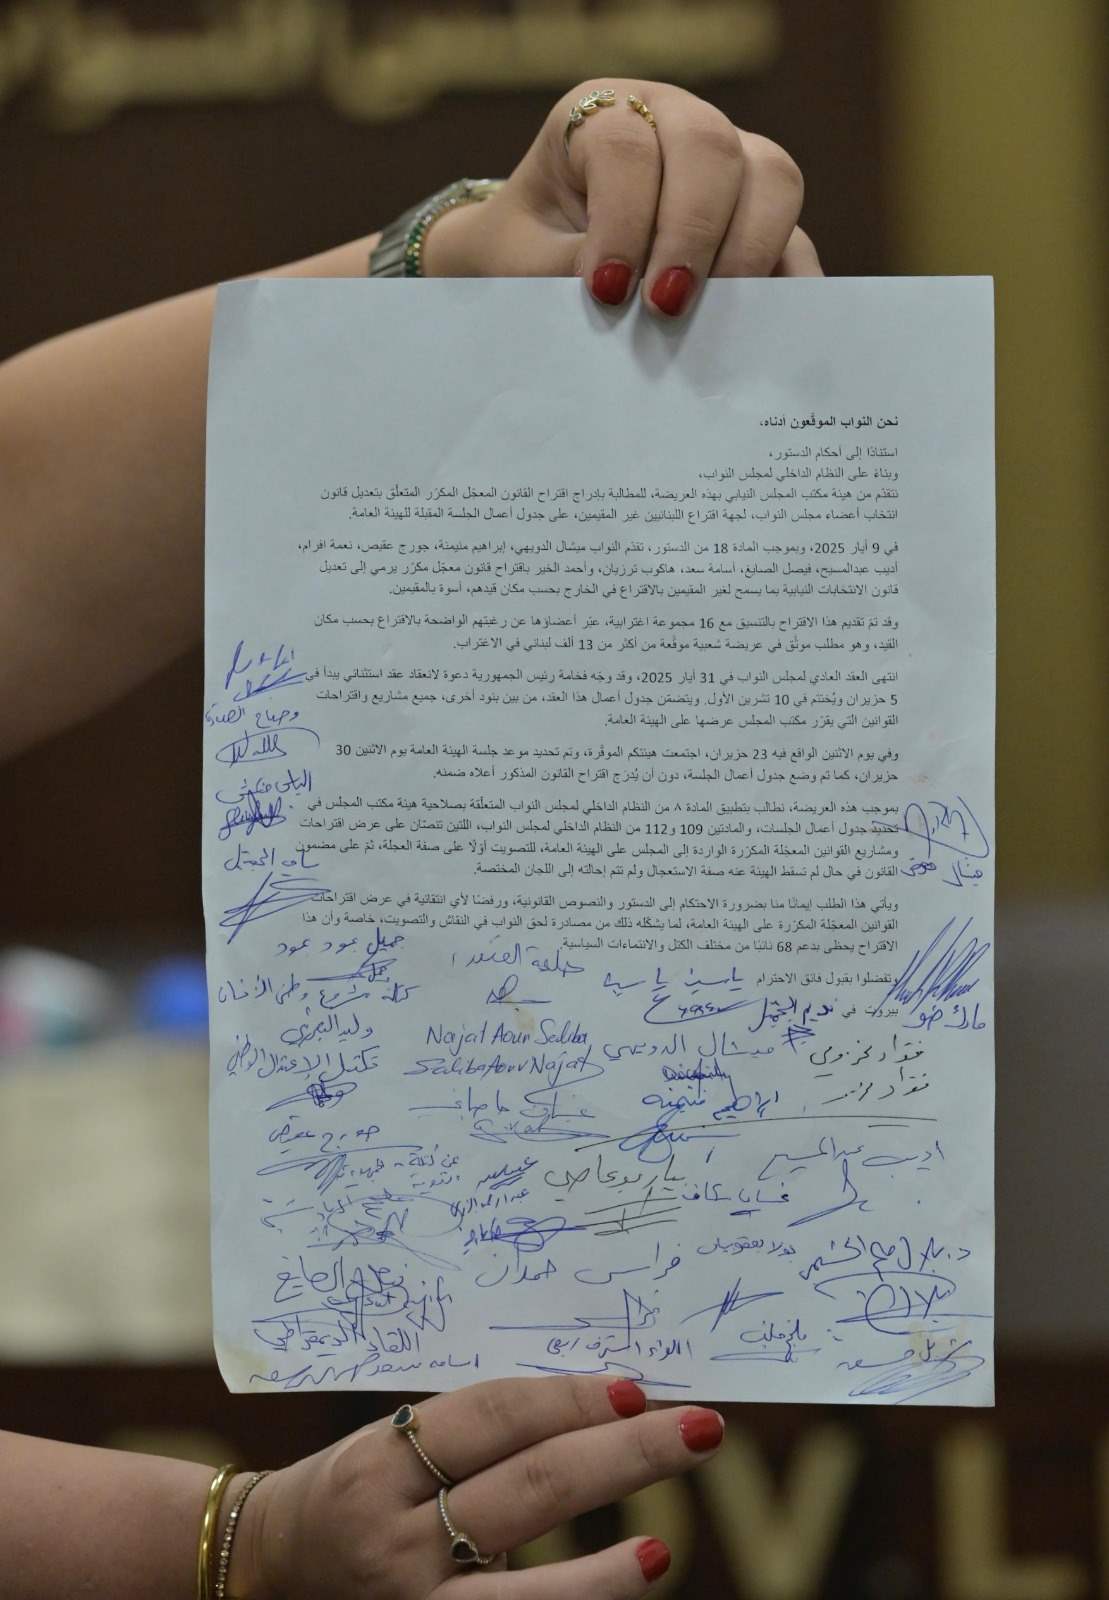 نحن النواب الموقّعون أدناه،
استنادًا إلى أحكام الدستور،
وبناءً على النظام الداخلي لمجلس النواب،
نتقدّم من هيئة مكتب المجلس النيابي بهذه العريضة، للمطالبة بإدراج اقتراح القانون المعجّل المكرّر المتعلّق بتعديل قانون
انتخاب أعضاء مجلس النواب، لجهة اقتراع اللبنانيين غير المقيمين، على جدول أعمال الجلسة المقبلة للهيئة العامة.
في 9 أيار 2025، وبموجب المادة 18 من الدستور، تقدّم النواب ميشال الدويهي، إبراهيم منيمنة، جورج عقيص، نعمة افرام،
أديب عبدالمسيح، فيصل الصايغ، أسامة سعد، هاكوب ترزيان، وأحمد الخير باقتراح قانون معجّل مكرّر يرمي إلى تعديل
قانون الانتخابات النيابية بما يسمح لغير المقيمين بالاقتراع في الخارج بحسب مكان قيدهم، أسوة بالمقيمين.
وقد تمّ تقديم هذا الاقتراح بالتنسيق مع 16 مجموعة اغترابية، عبّر أعضاؤها عن رغبتهم الواضحة بالاقتراع بحسب مكان
القيد، وهو مطلب موثّق في عريضة شعبية موقّعة من أكثر من 13 ألف لبناني في الاغتراب.
انتهى العقد العادي لمجلس النواب في 31 أيار 2025، وقد وجّه فخامة رئيس الجمهورية دعوة لانعقاد عقد استثنائي يبدأ في
5 حزيران ويُختتم في 10 تشرين الأول. ويتضمّن جدول أعمال هذا العقد، من بين بنود أخرى، جميع مشاريع واقتراحات
القوانين التي يقرّر مكتب المجلس عرضها على الهيئة العامة.
وفي يوم الاثنين الواقع فيه 23 حزيران، اجتمعت هيئتكم الموقّرة، وتم تحديد موعد جلسة الهيئة العامة يوم الاثنين 30
حزيران، كما تم وضع جدول أعمال الجلسة، دون أن يُدرَج اقتراح القانون المذكور أعلاه ضمنه.
بموجب هذه العريضة، نطالب بتطبيق المادة ٨ من النظام الداخلي لمجلس النواب المتعلّقة بصلاحية هيئة مكتب المجلس في
تحديد جدول أعمال الجلسات، والمادتين 109 و112 من النظام الداخلي لمجلس النواب، اللتين تنصّان على عرض اقتراحات
ومشاريع القوانين المعجّلة المكرّرة الواردة إلى المجلس على الهيئة العامة، للتصويت أوّلًا على صفة العجلة، ثمّ على مضمون
القانون في حال لم تسقط الهيئة عنه صفة الاستعجال ولم تتم إحالته إلى اللجان المختصة.
ويأتي هذا الطلب إيمانًا منا بضرورة الاحتكام إلى الدستور والنصوص القانونية، ورفضًا لأي انتقائية في عرض اقتراحات
القوانين المعجّلة المكرّرة على الهيئة العامة، لما يشكّله ذلك من مصادرة لحق النواب في النقاش والتصويت، خاصة وأن هذا
الاقتراح يحظى بدعم 68 نائبًا من مختلف الكتل والانتماءات السياسية.
وتفضلوا بقبول فائق الاحترام
بيروت في
الياس حنكش
سامي الجميّل
ميشال معوض
جميل عبود عبود
ياسين ياسين
نديم الجميّل
مارك ضو
Najat Aoun Saliba
Saliba Aoun Najat
ميشال الدويهي
فؤاد مخزومي
فؤاد مخزومي
وليد البعريني
تكتل الاعتدال الوطني
ابراهيم منيمنه
جورج عقيص
اديب عبد المسيح
بيار بو عاصي
غسان سكاف
بولا يعقوبيان
فراس حمدان
فيصل الصايغ
اللقاء الديمقراطي
اسامه سعد
اللواء اشرف ريفي
ملحم خلف